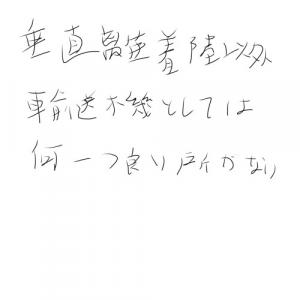 垂直離着陸以外
輸送機としては
何一つ良い所がない